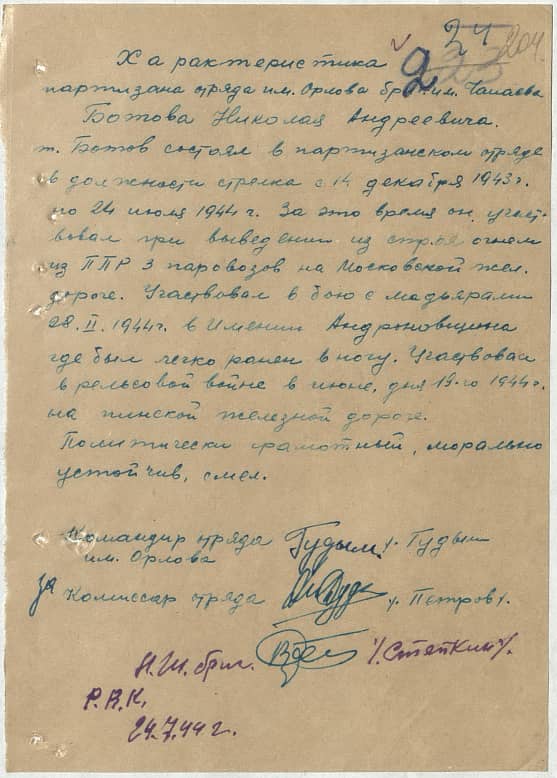 24
204
Характеристика
партизана отряда им. Орлова бр. им. Чапаева
Ботова Николая Андреевича.
т. Ботов состоял в партизанском отряде
в должности стрелка с 14 декабря 1943 г.
по 24 июля 1944 г. За это время он участ-
вовал при выведении из строя огнем
из ПТР 3 паровозов на Московской жел.
дороге. Участвовал в бою с мадьярами
28. II. 1944 г. в Имении Андроновщина
где был легко ранен в ногу. Участвовал
в рельсовой войне в июне, дня 19-го 1944 г.
на пинской железной дороге.
Политически грамотный, морально
устойчив, смел.
Командир отряда Гудым /. Гудым
им. Орлова
за Комиссар отряда /. Петров /.
Н. Ш. бриг. /. Степкин /.
Р. В. К.
24.7.44 г.